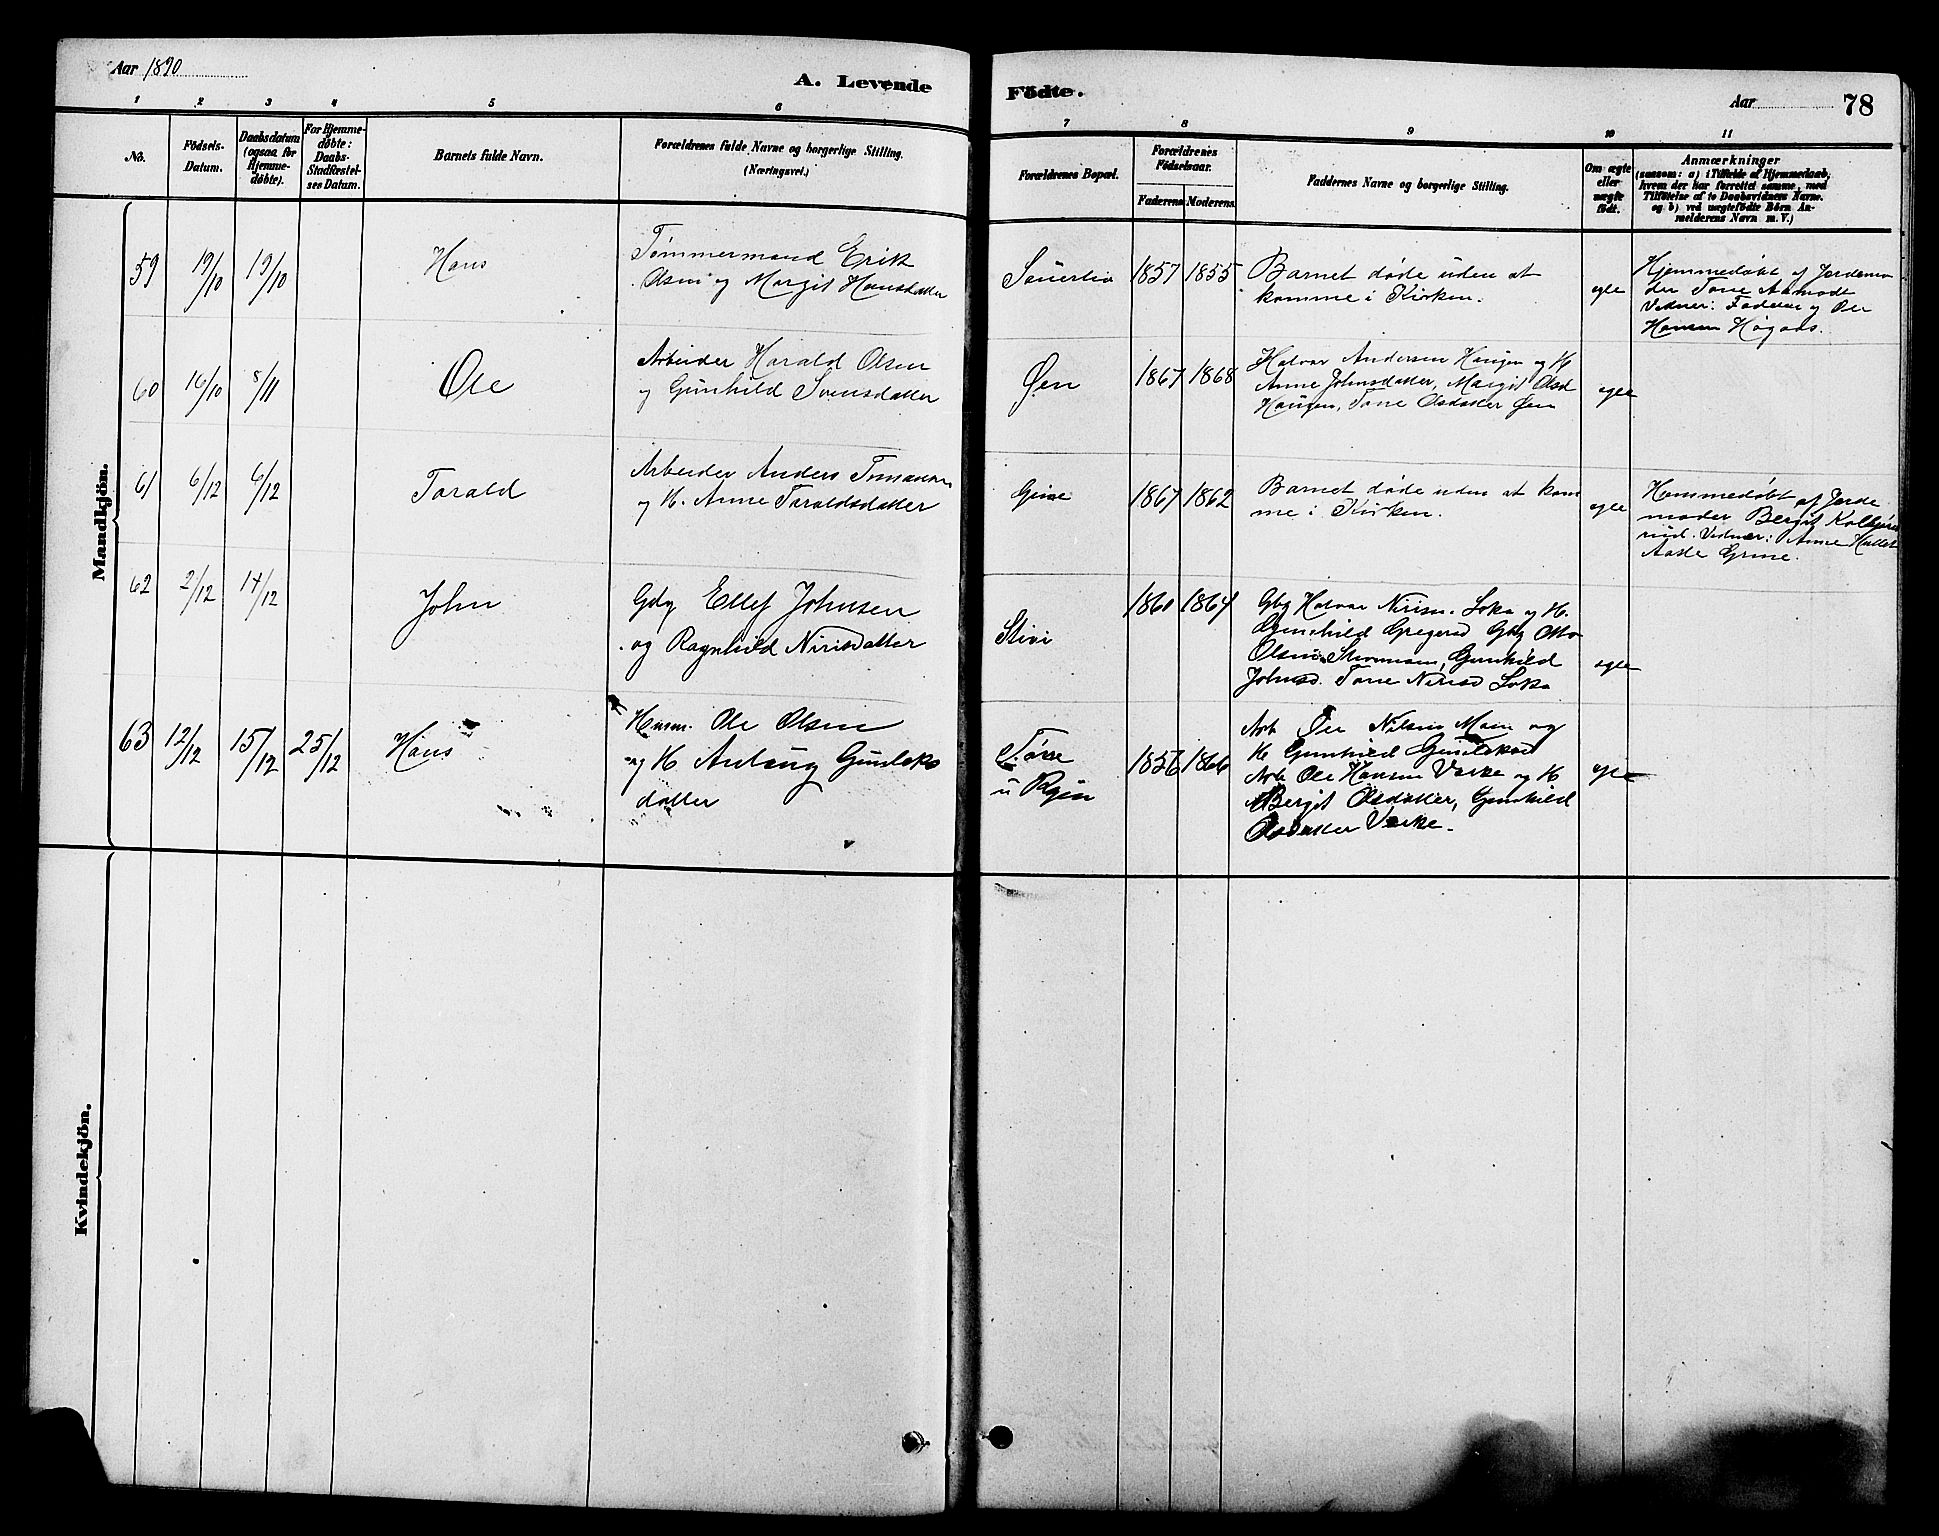 Aar 1890
A. Levende
Födte.
Aar
78
1 2 3 4 5 6 7 8 9 10 11
No.
Födsels-
Datum.
Daabsdatum
(ogsaa for
Hjemme-
døbte).
For Hjemme-
døbte:
Daabs-
Stadfæstel-
ses Datum.
Barnets fulde Navn.
Forældrenes fulde Navne og borgerlige Stilling.
(Næringsvei.)
Forældrenes Bopæl.
Forældrenes
Födselsaar.
Faderens Moderens
Faddernes Navne og borgerlige Stilling.
Om ægte
eller
uægte
født.
Anmærkninger
(saasom: a) i Tilfælde af Hjemmedaab,
hvem der har forrettet samme, med
Tilföielse af to Daabsvidners Navne.
og b) ved uægtefödte Börn An-
melderens Navn m. V.)
Mandkjön.
59 19/10 19/10
Hans
Tømmermand Erik
Olsen og Margit Hansdatter
1857 1855
Barnet døde uden at
komme i Kirken.
egte
Hjemmedøbt af Jordemo
der Tone Aamodt
Vidner: Faderen og Ole
Hansen Høgaas.
60 16/10 8/11
Ole
Arbeider Harald Olsen
og Gunhild Svensdatter
Øen
1867 1868
Halvor Andersen Haugen og H.
Anne Johnsdatter, Margit Olsd
Haugen, Tone Olsdatter Øen
egte
61 6/12 6/12
Tarald
Arbeider Anders
og H. Anne Taraldsdatter
1867 1862
Barnet døde uden at kom
me i Kirken.
egte
Hemmedøbt af Jorde
moder Bergit
rud. Vidner: Anne
Aase Grine.
62 2/12 14/12
John
Gbg Ellef Johnsen
og Ragnhild Nirisdatter
Stivi
1860 1864
Gbg Halvor Nirisn. Loka og H.
Gunhild Gregersd Gbg
Olsen, Gunhild
Johnsd. Tone Nirisd Loka
egte
63 12/12 15/12 25/12
Hans
Husm. Ole Olsen
og H Anlaug Gunleks
datter
u Rejen
1856 1866
Arb Ole Nilsen Moen og
H Gunhild Gunleksd
Arb Ole Hansen Varke og H
Bergit Olsdatter, Gunhild
Olsdatter Varke.
egte
Kvindekjön.